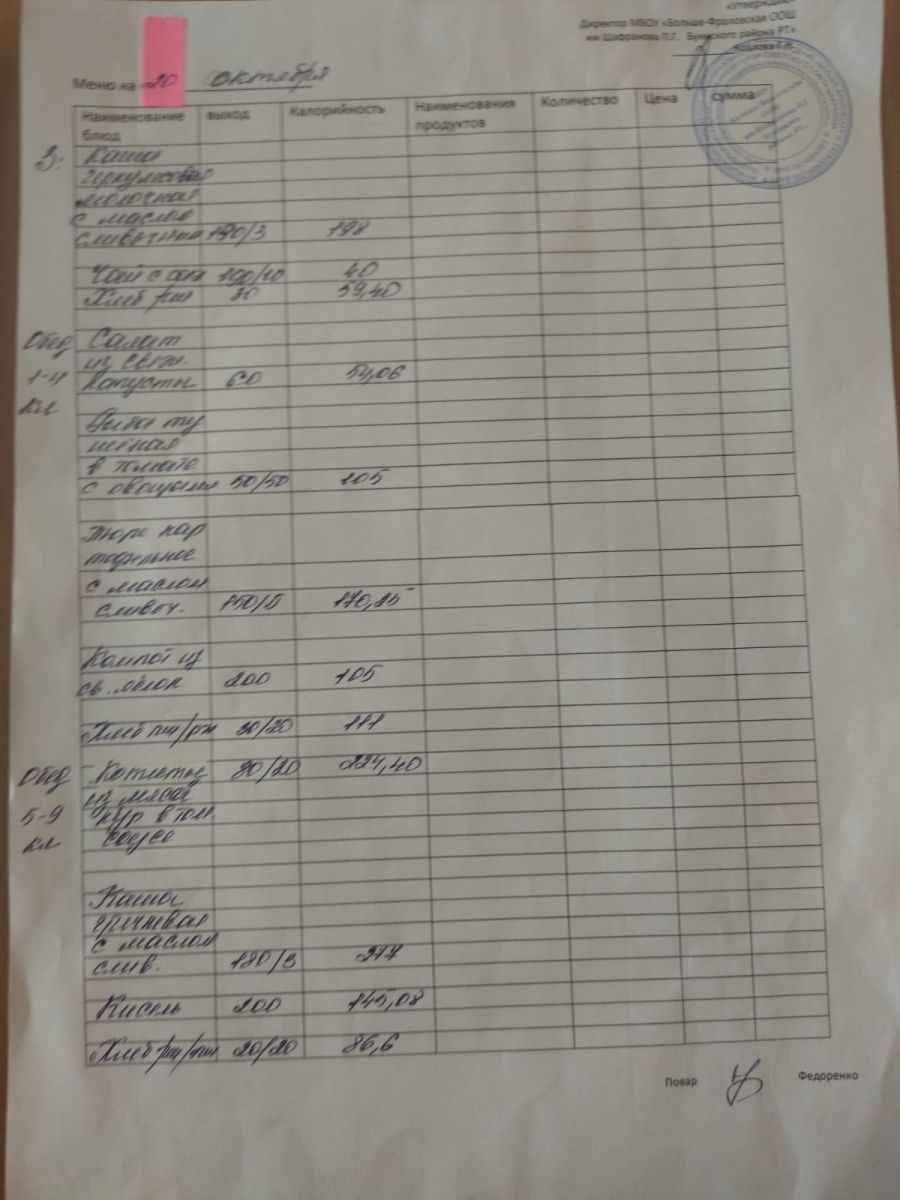 «Утверждаю»
Директор МБОУ «Больше-Фроловская ООШ
им Шафранова П.Г. Буинского района РТ»
Козлова Г.Н.
Меню на 20 октября
Наименование блюд выход Калорийность Наименования продуктов Количество Цена сумма
З: Каша
геркулесовая
молочная
с маслом
сливочным 190/3 198
Чай с сах 190/10 40
Хлеб рж 30 59,40
Обед Салат
из свеж.
1-4 Капусты 60 54,06
кл
Рыба ту
шеная
в томате
с овощами 50/50 105
Пюре кар
тофельное
с маслом
сливоч. 150/5 170,15
Компот из
св. яблок 200 105
Хлеб пш/рж 30/20 111
Обед Котлеты 80/20 224,40
из мяса
5-9 кур в том.
кл соусе
Каша
гречневая
с маслом
слив. 180/3 277
Кисель 200 145,08
Хлеб 20/20 86,6
Повар Федоренко